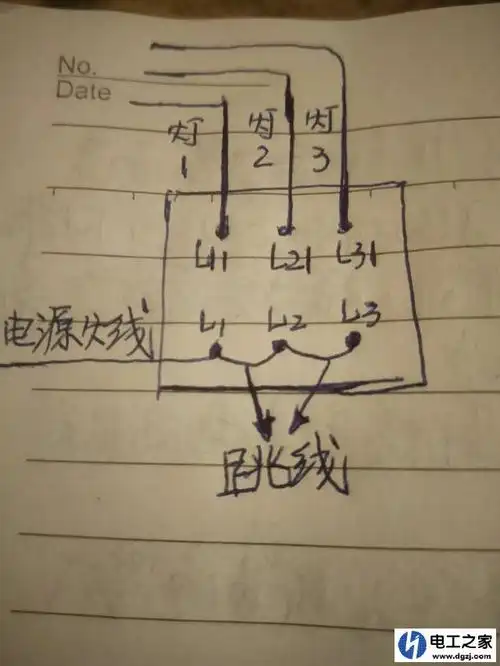 No.
Date
灯1
灯2
灯3
L11 L21 L31
L1 L2 L3
电源火线
跳线
电工之家
www.dgzj.com